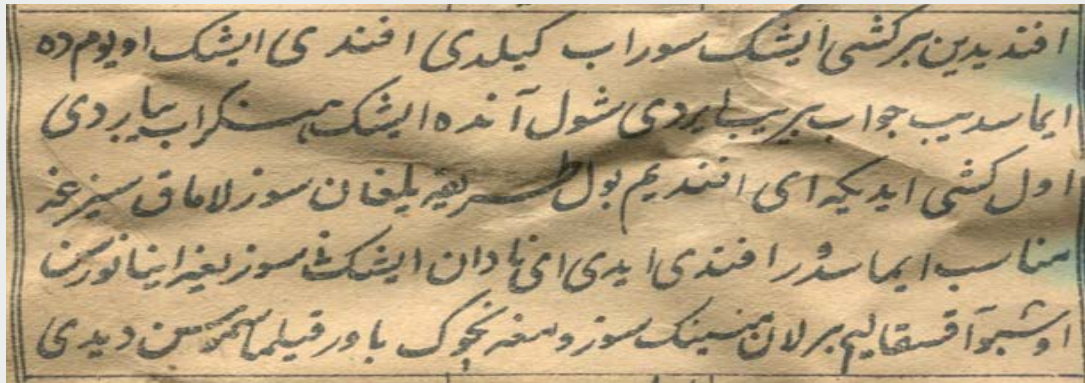 افندیدین بر کشی ایشک سوراب کیلدی افندی ایشک اویوم ده
ایماسدیب جواب بریب ایردی شول آنده ایشک هنکراب یباردی
اول کشی ایدیکه ای افندیم بول طریقه یلغان سوزلاماق سیزغه
مناسب ایماسدُر افندی ایدی ای نادان ایشک سوزیغه اینانورسن
اوشبو آق سقالیم برلان مینینک سوزومغه نچوک باور قیلمایسن دیدی